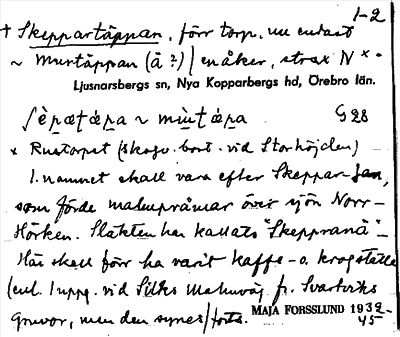 1-2
† Skeppartäppan, förr torp, nu endast
~ Murtäppan (ä ?) / en åker, strax N x.
Ljusnarsbergs sn, Nya Kopparbergs hd, Örebro län.
G 28
x Rustorpet (skogv. bost. vid Storhöjden)
1. namnet skall vara efter Skeppar-Jan,
som förde malmpråmar över sjön Norr-
Hörken. Släkten har kallats "Skepprana".-
Här skall förr ha varit kaffe- o. krogställe
(enl. 1 uppg. vid Silks Malmväg fr. Svartviks
gruvor, men den synes / forts.
MAJA FORSSLUND 1932-
45